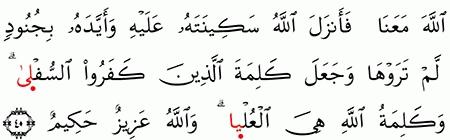 اللَّهَ مَعَنَا فَأَنزَلَ اللَّهُ سَكِينَتَهُ عَلَيْهِ وَأَيَّدَهُ بِجُنُودٍ
لَّمْ تَرَوْهَا وَجَعَلَ كَلِمَةَ الَّذِينَ كَفَرُوا السُّفْلَىٰ ۗ
وَكَلِمَةُ اللَّهِ هِيَ الْعُلْيَا ۗ وَاللَّهُ عَزِيزٌ حَكِيمٌ ﴿٤٠﴾